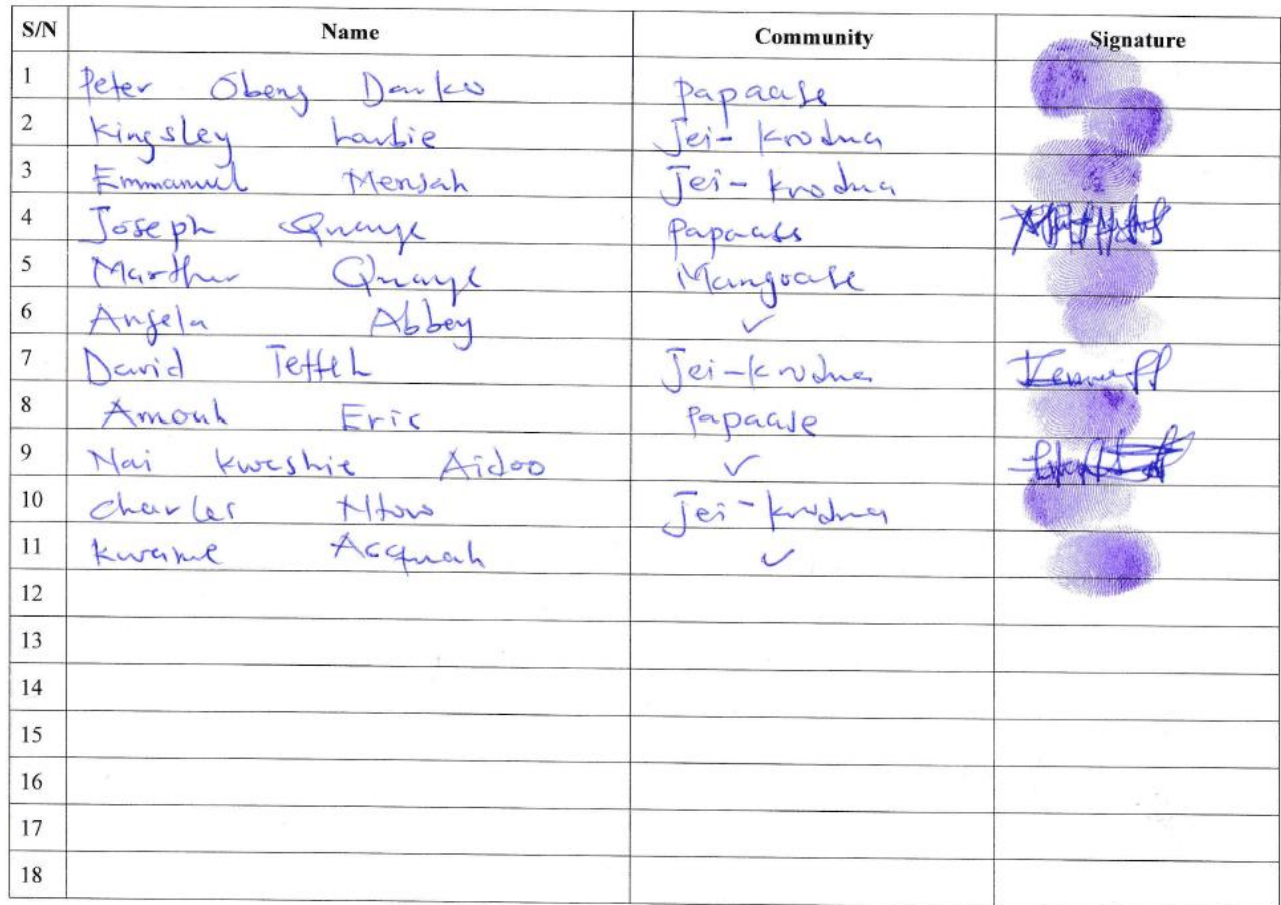 S/N Name Community Signature
1 Peter Obeng Darko Papaase
2 Kingsley Larbie Jei-Krodua
3 Emmanuel Mensah Jei-Krodua
4 Joseph Quaye Papaase
5 Marther Quaye Mangoase
6 Angela Abbey ✓
7 David Tetteh Jei-Krodua
8 Amoah Eric Papaase
9 Nai Kweshie Aidoo ✓
10 Charles Ntow Jei-Krodua
11 Kwame Acquah ✓
12
13
14
15
16
17
18